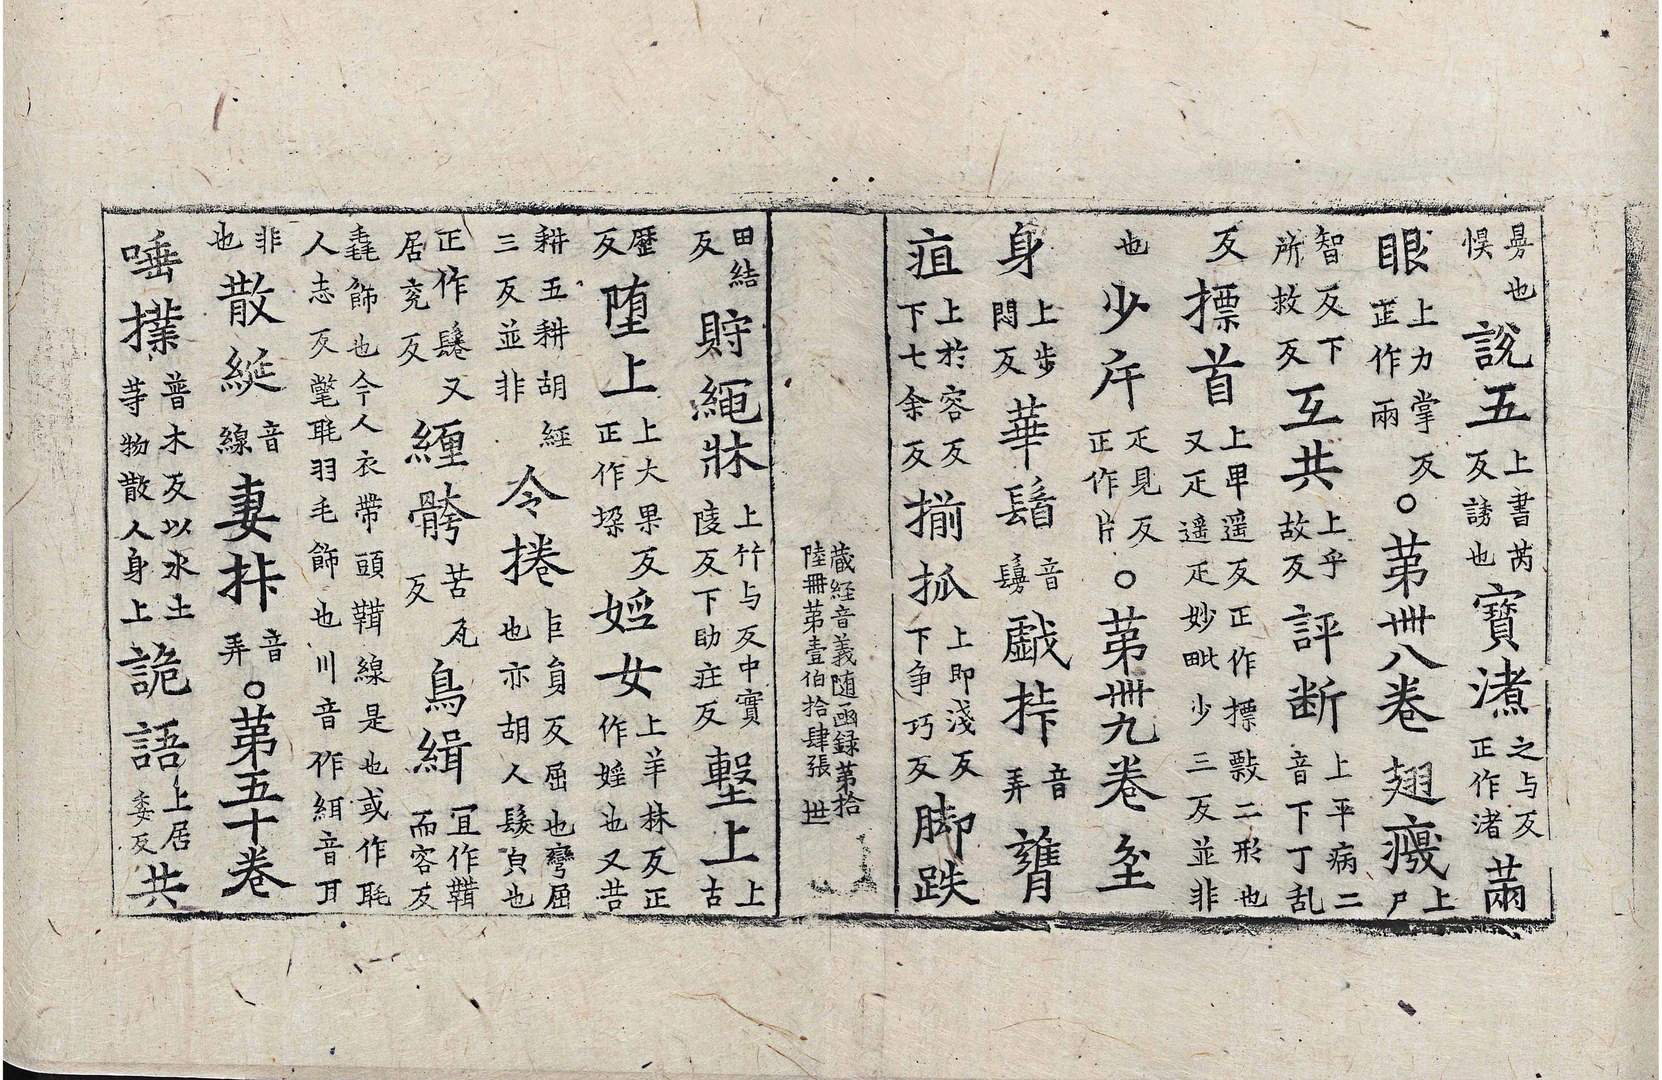 昜也悞說五上書芮反誘也寳濸之与反正作渚𦬆
眼上力掌反𦬆作兩○第卌八卷翅癈上尸
智反下所救反互共上乎故反評断上平病二音下丁乱
反摽首上卑遥反正作摽㪣二形也又疋遥疋妙毗少三反並非
也少㡿疋見反正作片○第卌九卷坌
身上步悶反華鬘音鬘戱挊音弄𦡱
疽上於容反下七余反揃抓上即淺反下争巧反脚跌
藏経音義随函録第拾
陸冊第壹伯拾肆張 丗
田結反貯䋲牀上竹与反中實陵反下助疰反墼上上古
歷反堕上上大果反正作垜婬女上羊林反正作婬也又苦
耕五耕胡經三反並非令捲巨負反屈也彎屈也亦胡人髮㒵也
正作鬈又居兖反纒骻苦瓦反鳥緝冝作鞲而容反
毳飾也今人衣帶頭鞲線是也或作毦人志反氅毦羽毛飾也川音作緝音耳
非也散綖音線妻挊音弄○第五十卷
唾㩧普木反以水土䓁物散人身上詭語上居委反共